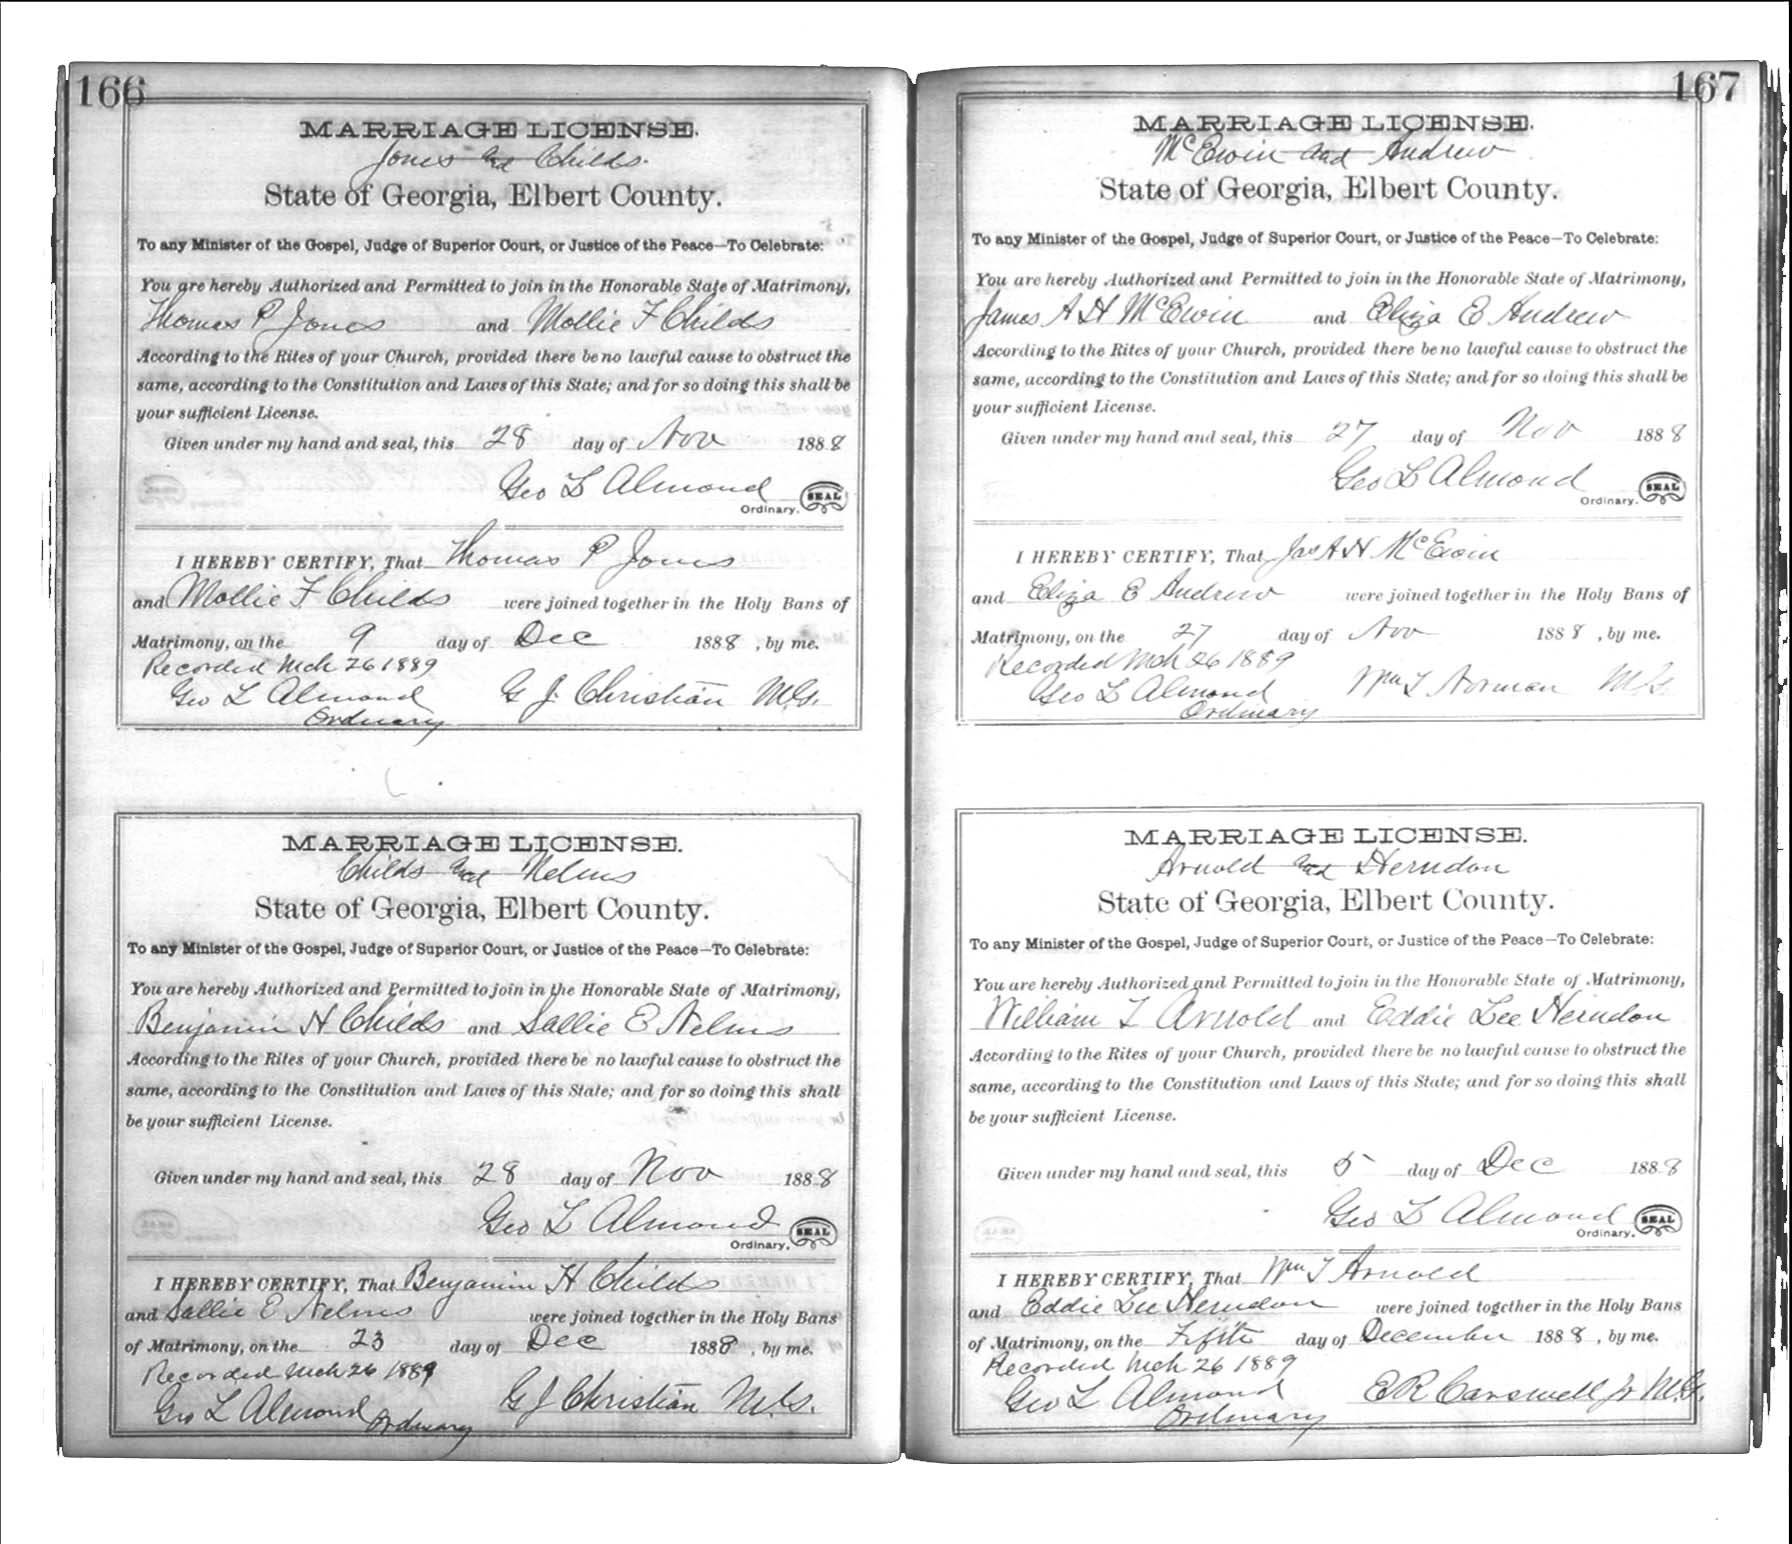 166
MARRIAGE LICENSE.
Jones and Childs.
State of Georgia, Elbert County.
To any Minister of the Gospel, Judge of Superior Court, or Justice of the Peace—To Celebrate:
You are hereby Authorized and Permitted to join in the Honorable State of Matrimony,
Thomas P Jones and Mollie F Childs
According to the Rites of your Church, provided there be no lawful cause to obstruct the
same, according to the Constitution and Laws of this State; and for so doing this shall be
your sufficient License.
Given under my hand and seal, this 28 day of Nov 1888
Geo L Almond
Ordinary. SEAL
I HEREBY CERTIFY, That Thomas P Jones
and Mollie F Childs were joined together in the Holy Bans of
Matrimony, on the 9 day of Dec 1888, by me.
Recorded Mch 26 1889
Geo L Almond G J Christian M.G.
Ordinary
MARRIAGE LICENSE.
Childs and Nelms
State of Georgia, Elbert County.
To any Minister of the Gospel, Judge of Superior Court, or Justice of the Peace—To Celebrate:
You are hereby Authorized and Permitted to join in the Honorable State of Matrimony,
Benjamin H Childs and Sallie E Nelms
According to the Rites of your Church, provided there be no lawful cause to obstruct the
same, according to the Constitution and Laws of this State; and for so doing this shall
be your sufficient License.
Given under my hand and seal, this 28 day of Nov 1888
Geo L Almond
Ordinary. SEAL
I HEREBY CERTIFY, That Benjamin H Childs
and Sallie E Nelms were joined together in the Holy Bans
of Matrimony, on the 23 day of Dec 1888, by me.
Recorded Mch 26 1889
Geo L Almond Ordinary G J Christian M.G.
167
MARRIAGE LICENSE.
McEwin and Andrew
State of Georgia, Elbert County.
To any Minister of the Gospel, Judge of Superior Court, or Justice of the Peace—To Celebrate:
You are hereby Authorized and Permitted to join in the Honorable State of Matrimony,
James A H McEwin and Eliza E Andrew
According to the Rites of your Church, provided there be no lawful cause to obstruct the
same, according to the Constitution and Laws of this State; and for so doing this shall be
your sufficient License.
Given under my hand and seal, this 27 day of Nov 1888
Geo L Almond
Ordinary. SEAL
I HEREBY CERTIFY, That Jas A H McEwin
and Eliza E Andrew were joined together in the Holy Bans of
Matrimony, on the 27 day of Nov 1888, by me.
Recorded Mch 26 1889
Geo L Almond Wm T Norman M.G.
Ordinary
MARRIAGE LICENSE.
Arnold and Herndon
State of Georgia, Elbert County.
To any Minister of the Gospel, Judge of Superior Court, or Justice of the Peace—To Celebrate:
You are hereby Authorized and Permitted to join in the Honorable State of Matrimony,
William T Arnold and Eddie Lee Herndon
According to the Rites of your Church, provided there be no lawful cause to obstruct the
same, according to the Constitution and Laws of this State; and for so doing this shall
be your sufficient License.
Given under my hand and seal, this 5 day of Dec 1888
Geo L Almond
Ordinary. SEAL
I HEREBY CERTIFY, That Wm T Arnold
and Eddie Lee Herndon were joined together in the Holy Bans
of Matrimony, on the Fifth day of December 1888, by me.
Recorded Mch 26 1889
Geo L Almond E R Carswell Jr M.G.
Ordinary